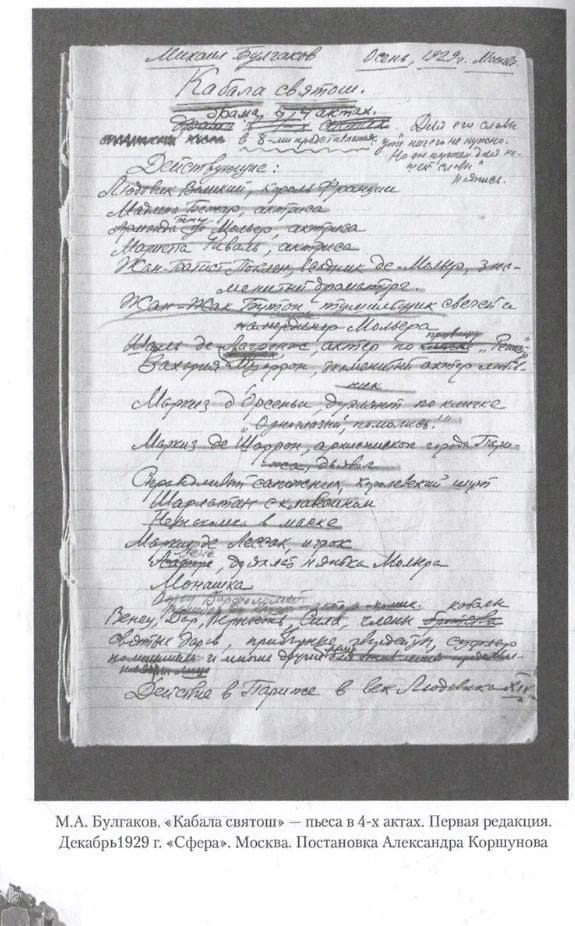 Михаил Булгаков Осень, 1929 г. Москва
Кабала святош.
драма, 4 актах.
в 8-ми представлениях. Для его славы
уже ничего не нужно.
Но он нужен для на-
шей славы
Действующие:
Людовик Великий, король Франции
Мадлена Бежар, актриса
Арманда де Мольер, актриса
Мариетта Риваль, актриса
Жан-Батист Поклен, де Мольер, зна-
менитый драматург.
Жан-Жак Бутон тушильщик свечей и
камердинер Мольера
де Лагранж, актер по
Захария Муаррон, знаменитый актер любов-
ник
Маркиз д'Орсиньи, дуэлянт по кличке
"Одноглазый, помолись!"
Маркиз де Шаррон, архиепископ города Пари-
жа,
Справедливый сапожник, королевский шут
Шарлатан с клавесином
Незнакомка в маске
де Лессак, игрок
Рене, дряхлая нянька Мольера
Монашка
Отец Варфоломей
Верность, Сила, члены кабалы
святых даров, придворные, суфлер
и многие другие
Действие в Париже в век Людовика XIV.
М.А. Булгаков. «Кабала святош» — пьеса в 4-х актах. Первая редакция.
Декабрь1929 г. «Сфера». Москва. Постановка Александра Коршунова